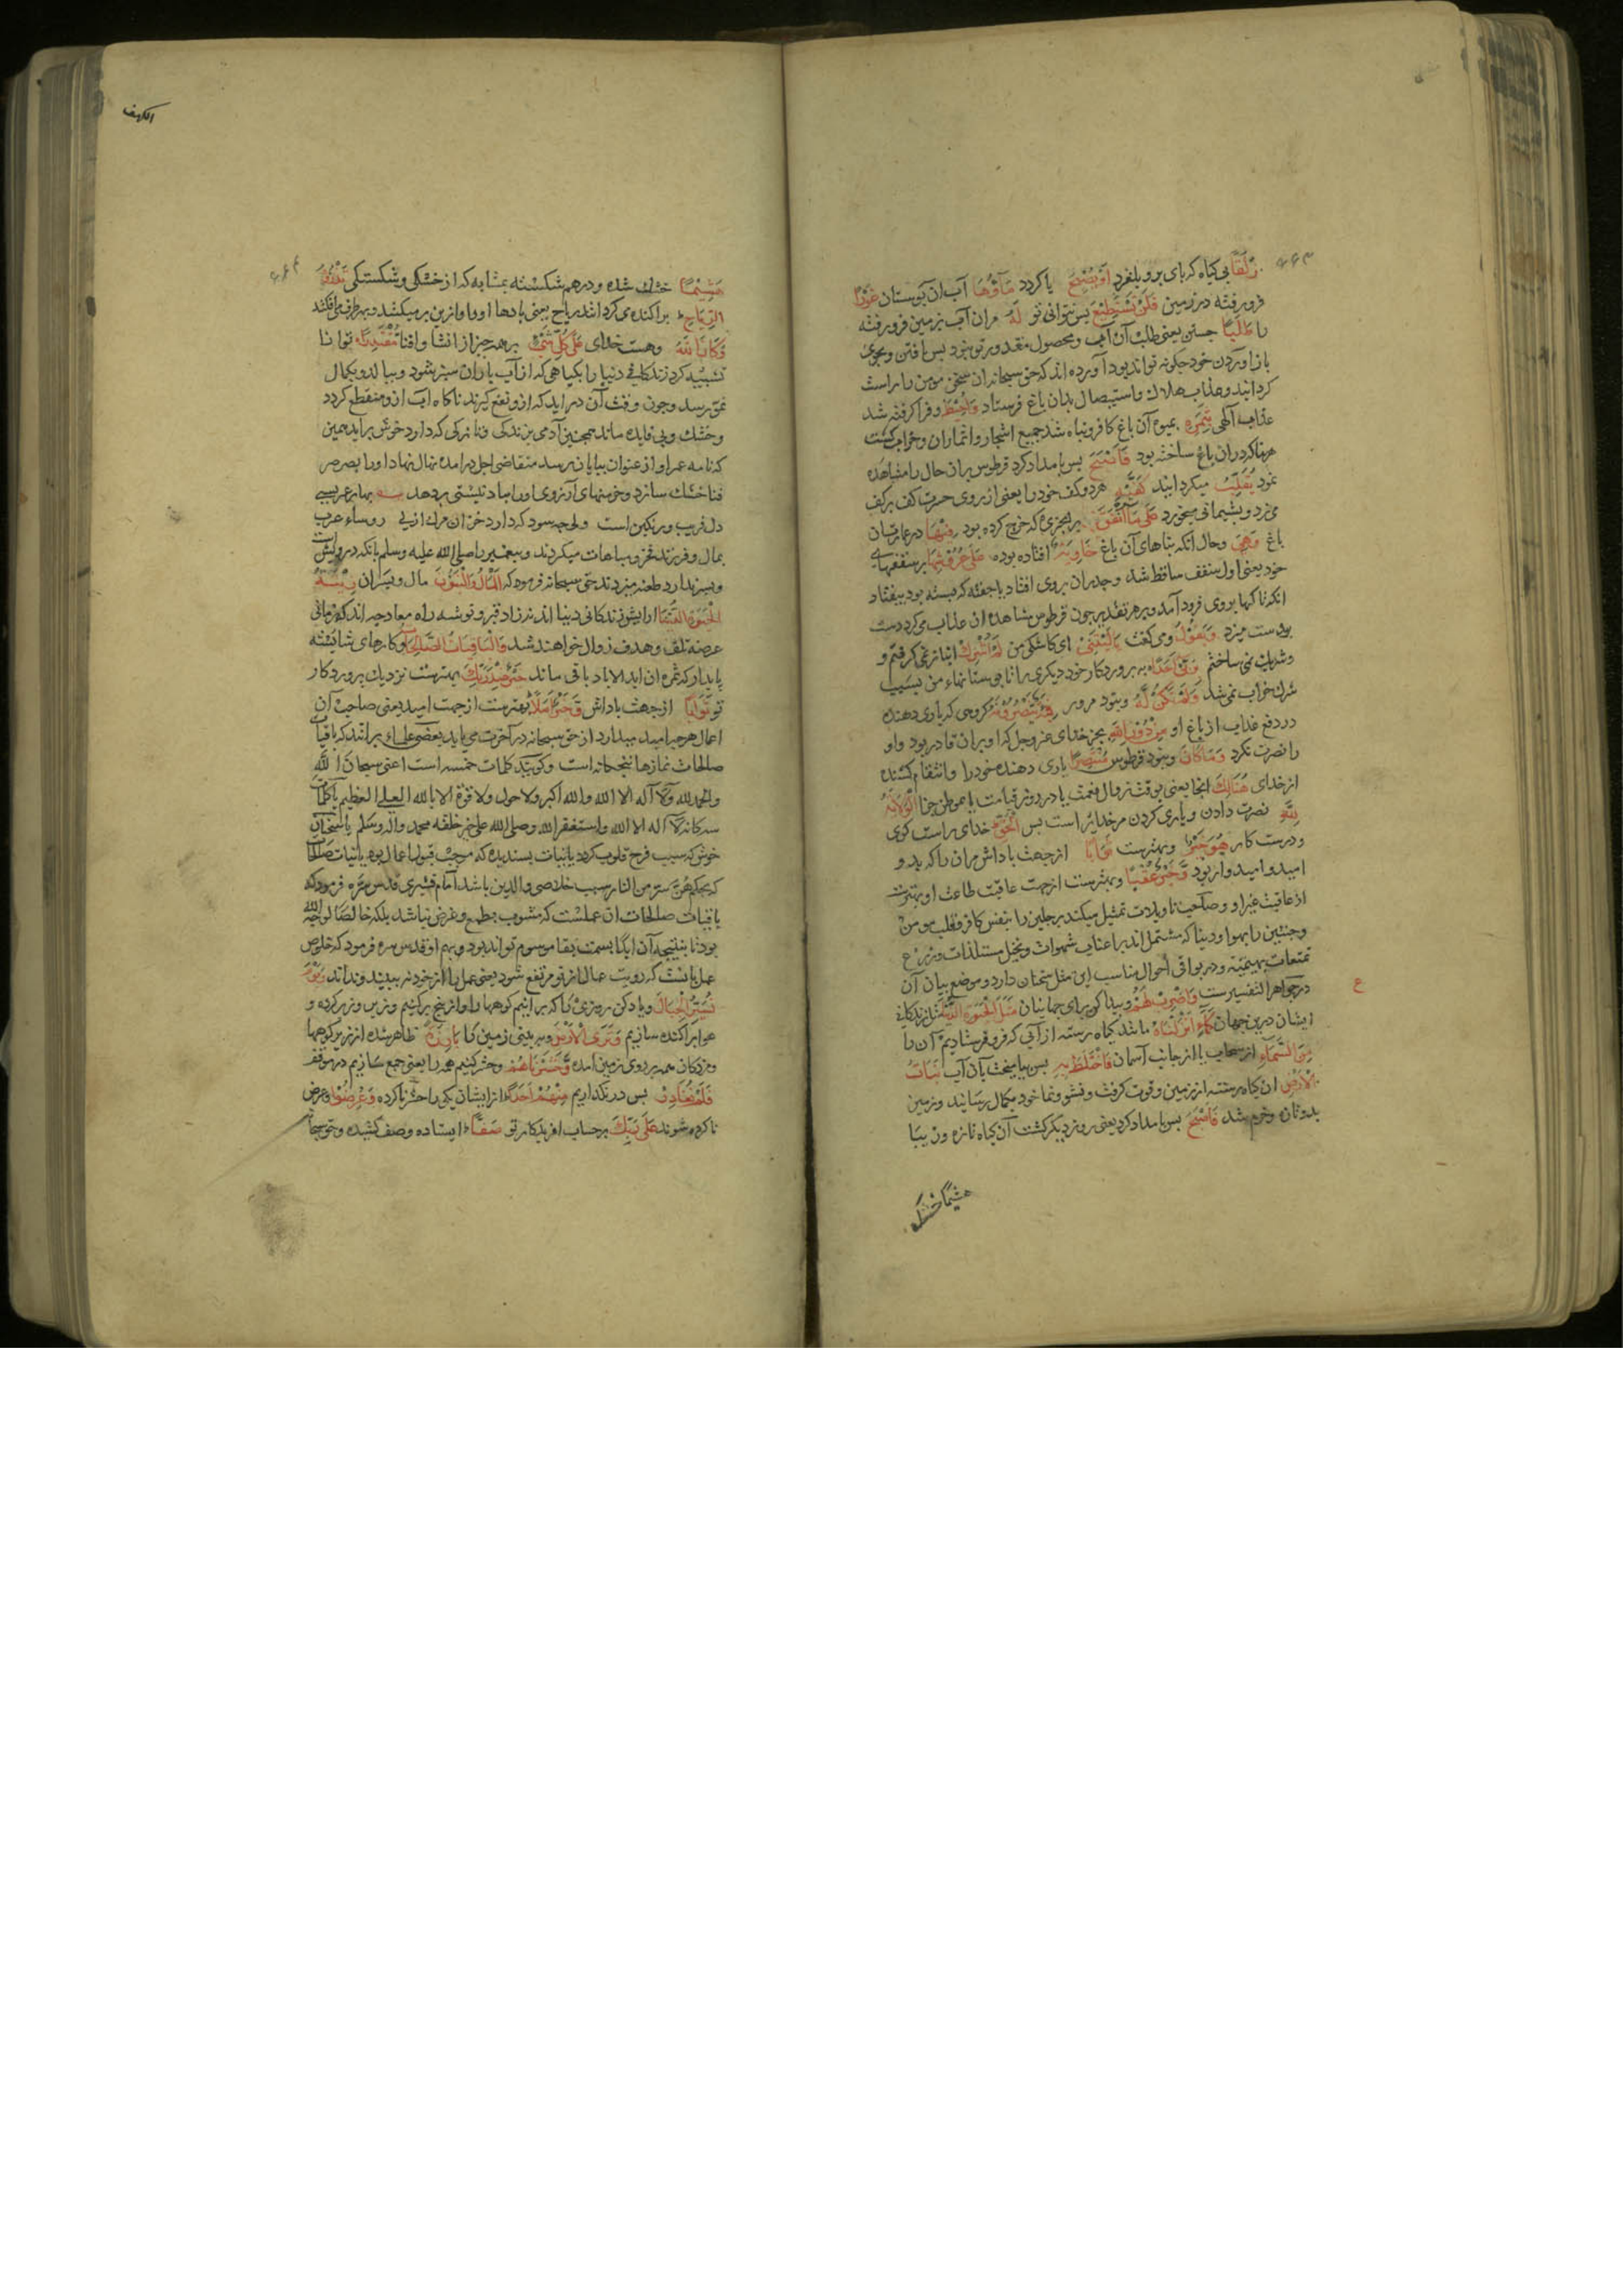 زَلَقًا بی کیاه که بای برو بلغزد أَوْ يُصْبِحَ یا کردد مَآؤُهَا آب ان بوستان غَوْرًا
فرو رفته در زمین فَلَنْ تَسْتَطِيْعَ بس نتوانی تو لَهُ مران آب بزمین فرو رفته
را طَلَبًا جستن یعنی طلب آن آب و محصول مقدور تو نبود بس یافتن و
باز اوردن خود جکونه تواند بود آورده اند که حق سبحانه ان سخن مومن را راست
کردانید و عذاب هلاك و استیصال بدان باغ فرستاد وَاُحِيْطَ و فرا کرفته شد
عذاب آلهی بِثَمَرِهٖ بمیوه آن باغ کافر و تباه شد جمیع اشجار و اثماران و خراب کشت
هر بنا که دران باغ ساخته بود فَاَصْبَحَ بس بامداد کرد قرطوس بران حال را مشاهده
نمود يُقَلِّبُ میکردانید كَفَّيْهِ هر دو کف خود را یعنی از روی حسرت کف بر کف
می زد و بشیمانی میخورد عَلٰى مَآ اَنْفَقَ بر انجیزی که خرج کرده بود فِيْهَا در عمارت ان
باغ وَهِيَ و حال انکه بناهای آن باغ خَاوِيَةٌ افتاده بوده عَلٰى عُرُوْشِهَا بر سقفهای
خود یعنی اول سقف ساقط شد و جدران بروی افتاد یا جفته که بسته بود بیفتاد
انکه تاکها بروی فرود آمد و بر هر تقدیر جون قرطوس مشاهده ان عذاب می کرد دست
بر دست میزد وَيَقُوْلُ و می کفت يَالَيْتَنِيْ ای کاشکی من لَمْ اُشْرِكْ انباز نمی کرفتم و
و شریك نمی ساختم بِرَبِّيْ اَحَدًا به بروردکار خود دیکری را تا بستانهاء من بسبب
شرك خراب نمی شد وَلَمْ تَكُنْ لَّهٗ و نبود مر ور فِئَةٌ يَّنْصُرُوْنَهٗ کروهی که یاری دهنده
در دفع عذاب از باغ او مِنْ دُوْنِ اللّٰهِ بجز خدای عز و جل که او بران قادر بود و او
را نصرت نکرد وَمَا كَانَ و نبود قرطوس مُنْتَصِرًا یاری دهنده خود را و انتقام کشنده
از خدای هُنَالِكَ انجا یعنی بوقت زوال نعمت یا در روز قیامت یا موطن جزا الْوَلَايَةُ
لِلّٰهِ نصرت دادن و یاری کردن مر خدایراست بس الْحَقِّ خدای راست کوی
و درست کار هُوَ خَيْرٌ و بهترست ثَوَابًا از جهت باداش مران را که بدو
امید و امیدوار بود وَّخَيْرٌ عُقْبًا و بهترست از جهت عاقبت طاعت او بهترست
از عاقبت غیر او و صاحب تاویلات تمثیل میکند رجلین را بنفس کافر و قلب مومن
و جنتین را بهوا و دنیا که مشتمل اند بر اعناب شهوات و نخیل مستلذات و زرع
تمتعات بهیمیّه و در بواقی احوال مناسب این مثل سخنان دارد و موضع بیان آن
در جواهر التفسیرست وَاضْرِبْ لَهُمْ و بیان کن برای جهانیان مَثَلَ الْحَيٰوةِ الدُّنْيَا مثل زندکانی
ایشان درین جهان كَمَآءٍ اَنْزَلْنَاهُ مانند کیاه رسته از آبی که فرو فرستادیم آن را
مِنَ السَّمَآءِ از سحاب یا از جانب آسمان فَاخْتَلَطَ بِهٖ بس بیامیخت بآن آب نَبَاتُ
الْاَرْضِ ان کیاه رسته از زمین و قوت کرفت و نشو و نما خود بکمال رسانید و زمین
بدو تازه و خرم شد فَاَصْبَحَ بس بامداد کرد یعنی روز دیکر کشت آن کیاه تازه و زیبا
هشیمًا خشك
الکهف
هَشِيْمًا خشك شده و درهم شکسته بمثابه که از خشکی و شکستکی تَذْرُوْهُ
الرِّيَاحُ براکنده می کرد انند ریاح یعنی بادها او را و از زمین بر میکشد و بهر طرف می افکند
وَكَانَ اللّٰهُ و هست خدای عَلٰى كُلِّ شَيْءٍ بر همه جیز از انشا و افنا مُّقْتَدِرًا توانا
تشبیه کرد زندکانی دنیا را بکیاهی که از آب باران سبز شود و ببالد و بکمال
نمو رسد و جون وقت آن دراید که ازو نفع کیرند ناکاه آب ازو منقطع کردد
و خشك و بی فایده ماند همجنین آدمی بزندکی و تازکی که دارد خوش براید همین
که نامه عمر او از عنوان ببایان رسد متقاضی اجل درامده نهال نهاد او را بصرصر
فنا خشك سازد و خرمنهای آرزوی او را بباد نیستی بردهد بهار عمر بسی
دل فریب و رنکین است ولی جه سود که دارد خزان مرك از بی روساء عرب
بمال و فرزند فخر و مباهات میکردند و بیغمبر را صلی الله علیه وسلم بانکه درویش است
و بسر ندارد طعنه میزدند حق سبحانه فرمود که اَلْمَالُ وَالْبَنُوْنَ مال و بسران زِيْنَةُ
الْحَيٰوةِ الدُّنْيَا ارایش زندکانی دنیا اند نه زاد قبر و توشه راه معاد جه اندك زمانی
عرضه تلف و هدف زوال خواهند شد وَالْبَاقِيَاتُ الصَّالِحَاتُ و کارهای شایسته
پایدار که ثمره ان ابد الاباد باقی ماند خَيْرٌ عِنْدَ رَبِّكَ بهترست نزدیك بروردکار
تو ثَوَابًا از جهت باداش وَّخَيْرٌ اَمَلًا بهترست از جهت امید یعنی صاحب آن
اعمال هر جه امید میدارد از حق سبحانه در آخرت می یابد بعضی علماء برانند که باقیات
صالحات نمازها بنجکانه است و کویند کلمات خمسه است اعنی سبحان الله
والحمد لله ولا آله الا الله والله اکبر ولا حول ولا قوة الا بالله العلی العظیم یا کلمات
سه کانه لا اله الا الله واستغفر الله وصلی الله علی خیر خلقه محمد واله وسلم یا سخنان
خوش که سبب فرح قلوب کردد یا نیات بسندیده که موجب قبول اعمال بود یا بنات صالحات
که بحکم هن ستر من النار سبب خلاصی والدین باشد امام قشیری قدس سره فرمود که
باقیات صالحات ان عملست که مشوب بطمع و غرض نباشد بلکه خالصًا لوجه الله
بود تا نتیجه آن ابدًا بسمت بقا موسوم تواند بود و بهم او قدس سره فرمود که خلوص
عمل بانست که رویت عمال از تو مرتفع شود یعنی عمل را از خود نه بینید و نداند وَيَوْمَ
نُسَيِّرُ الْجِبَالَ و یاد کن روزی را که برانیم کوهها را و از بیخ برکنیم و زیر و زبر کرده و
هوا براکنده سازیم وَتَرَى الْاَرْضَ و ببینی زمین را بَارِزَةً ظاهر شده از زیر کوهها
و مردکان همه بر روی زمین آمده وَّحَشَرْنَاهُمْ و حشر کنیم همه را یعنی جمع سازیم در موقف
فَلَمْ نُغَادِرْ بس در نکذاریم مِنْهُمْ اَحَدًا از ایشان یکی را حشر ناکرده وَعُرِضُوْا و عرض
ناکرده شوند عَلٰى رَبِّكَ بر حساب افریدکار تو صَفًّا ایستاده وصف کشیده و حق سبحانه